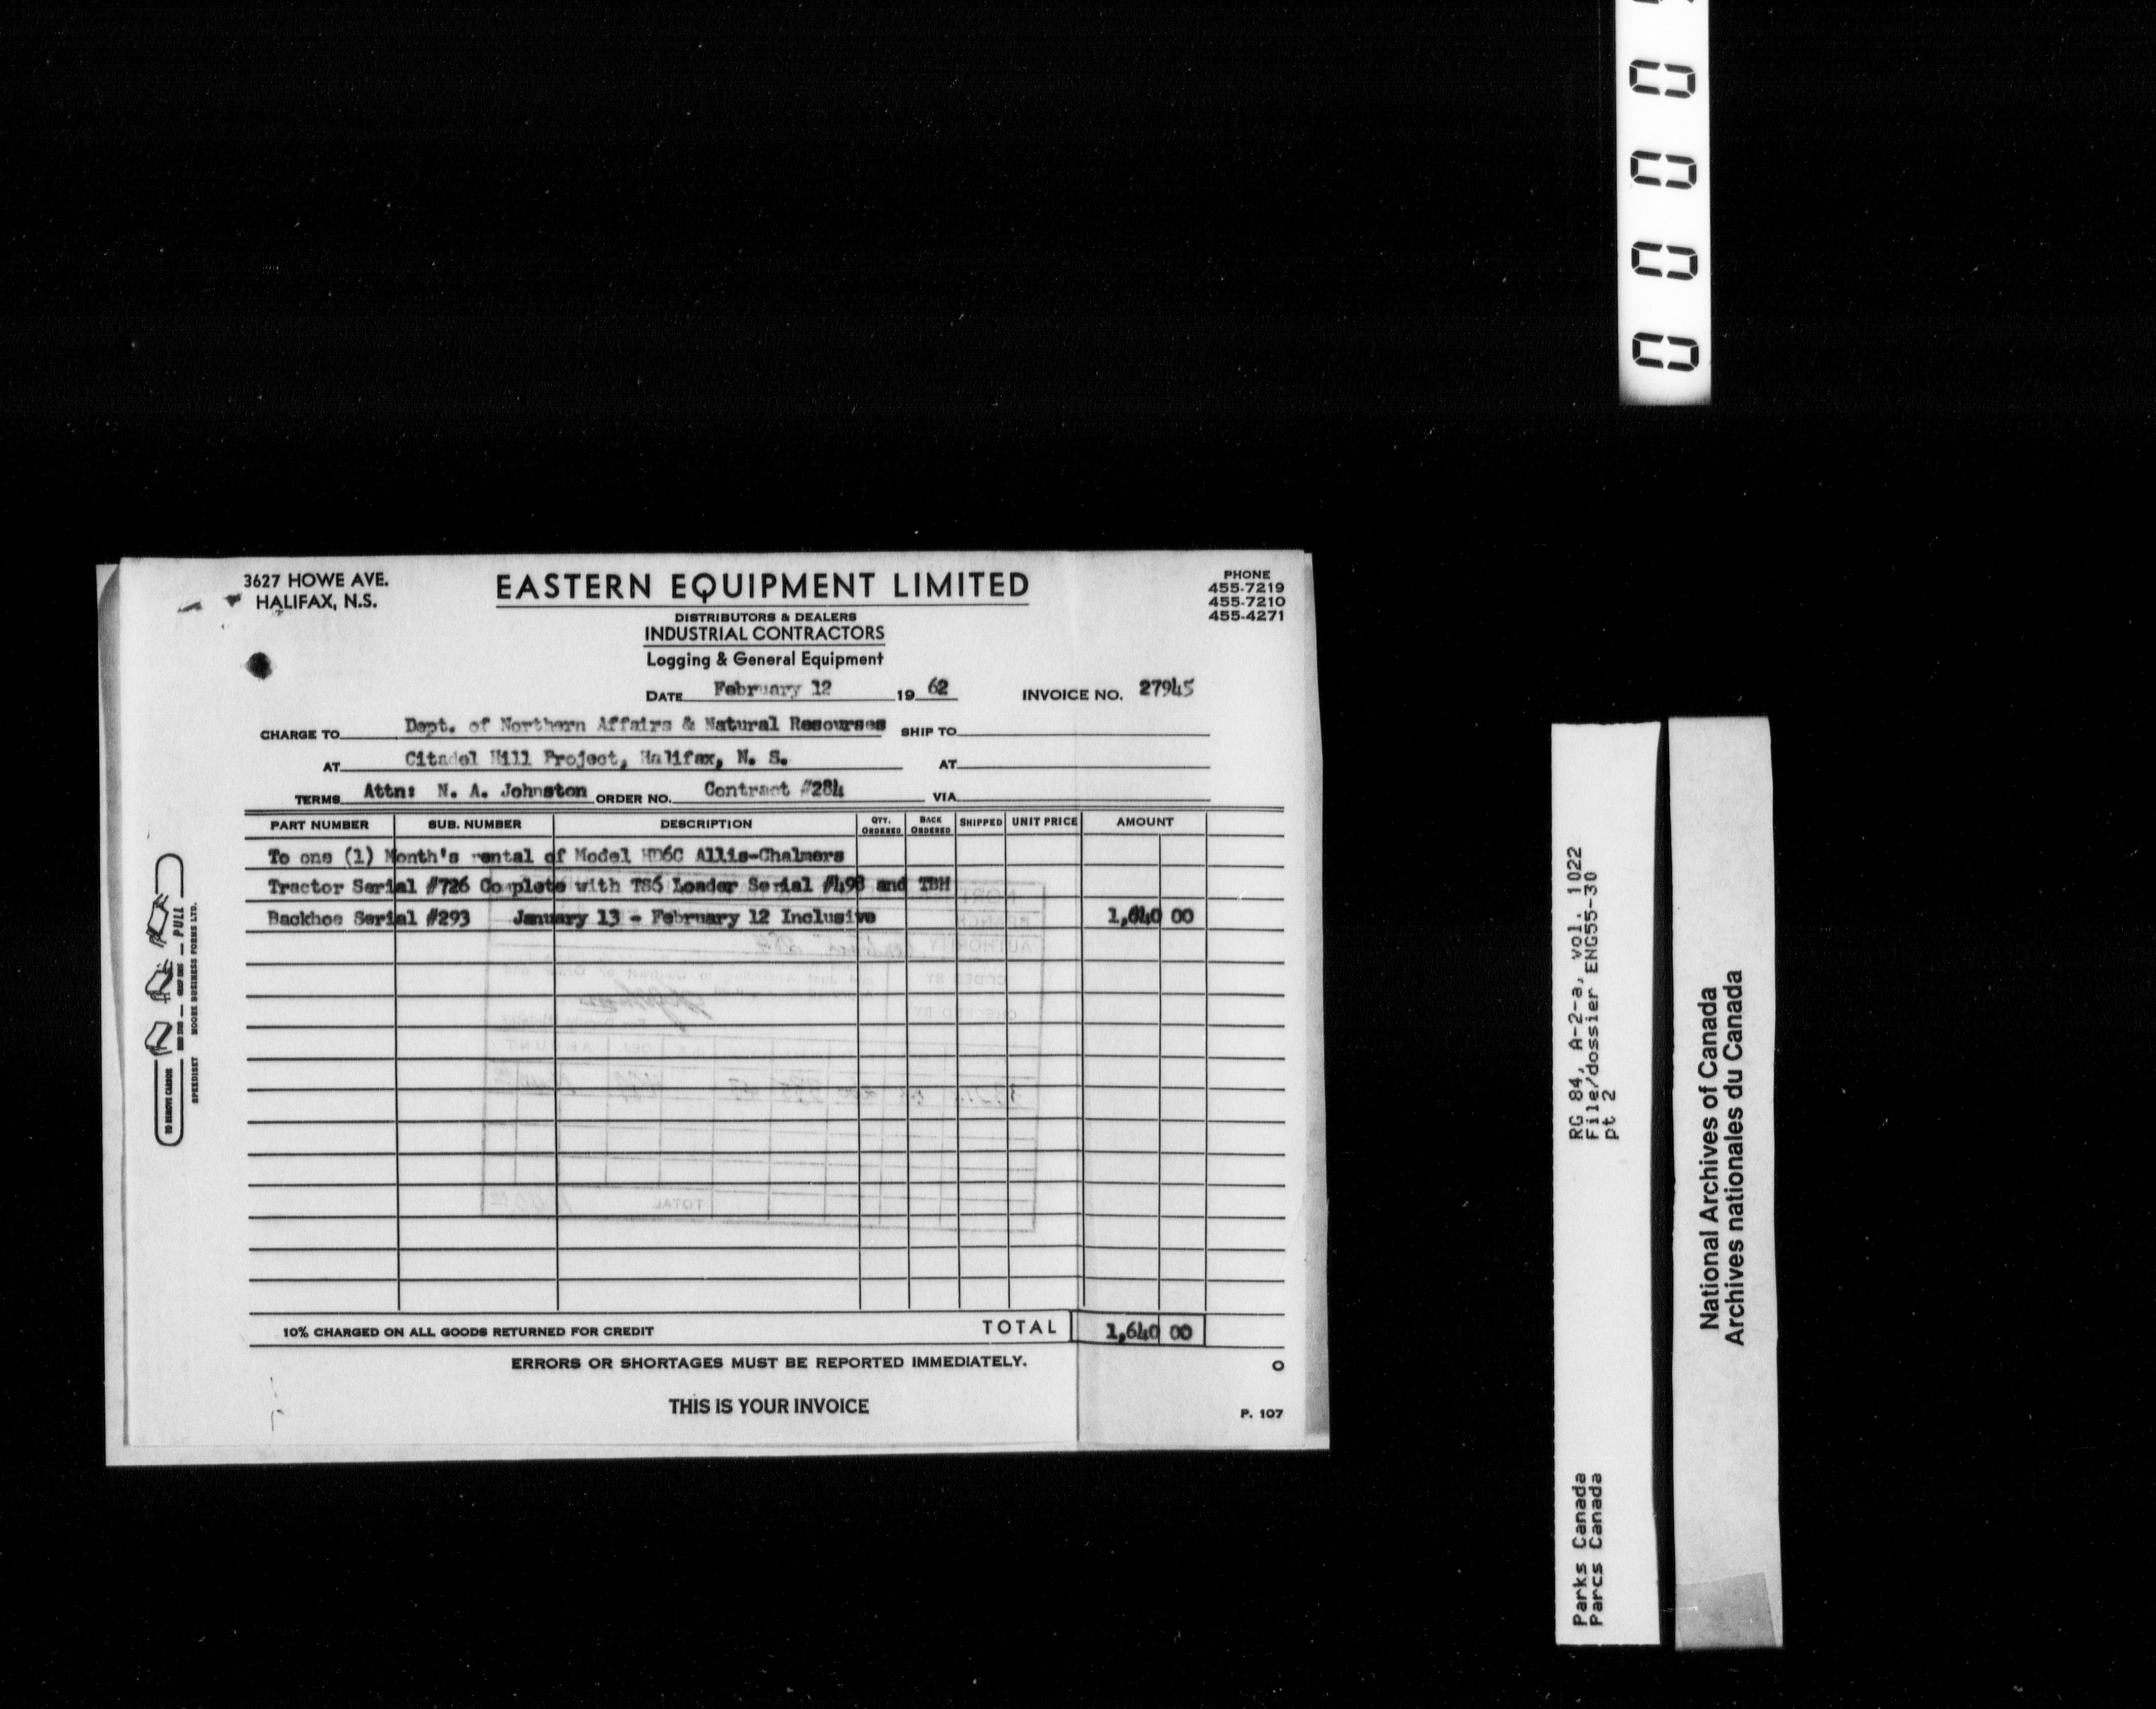 3627 HOWE AVE.
HALIFAX, N.S.
EASTERN EQUIPMENT LIMITED
DISTRIBUTORS & DEALERS
INDUSTRIAL CONTRACTORS
Logging & General Equipment
PHONE
455-7219
455-7210
455-4271
DATE February 12 19 62 INVOICE NO. 27945
CHARGE TO Dept. of Northern Affairs & Natural Resourses SHIP TO
AT Citadel Hill Project, Halifax, N. S. AT
TERMS Attn: N. A. Johnston ORDER NO. Contract #284 VIA
PART NUMBER SUB. NUMBER DESCRIPTION QTY. ORDERED BACK ORDERED SHIPPED UNIT PRICE AMOUNT
To one (1) Month's rental of Model HD6C Allis-Chalmers
Tractor Serial #726 Complete with TS6 Loader Serial #498 and TBH
Backhoe Serial #293 January 13 - February 12 Inclusive 1,640 00
10% CHARGED ON ALL GOODS RETURNED FOR CREDIT TOTAL 1,640 00
ERRORS OR SHORTAGES MUST BE REPORTED IMMEDIATELY.
THIS IS YOUR INVOICE
P. 107
TO REMOVE CARBON PULL
SPEEDISET MOORE BUSINESS FORMS LTD.
0000
RG 84, A-2-a, vol. 1022
File/dossier ENG55-30
pt 2
Parks Canada
Parcs Canada
National Archives of Canada
Archives nationales du Canada